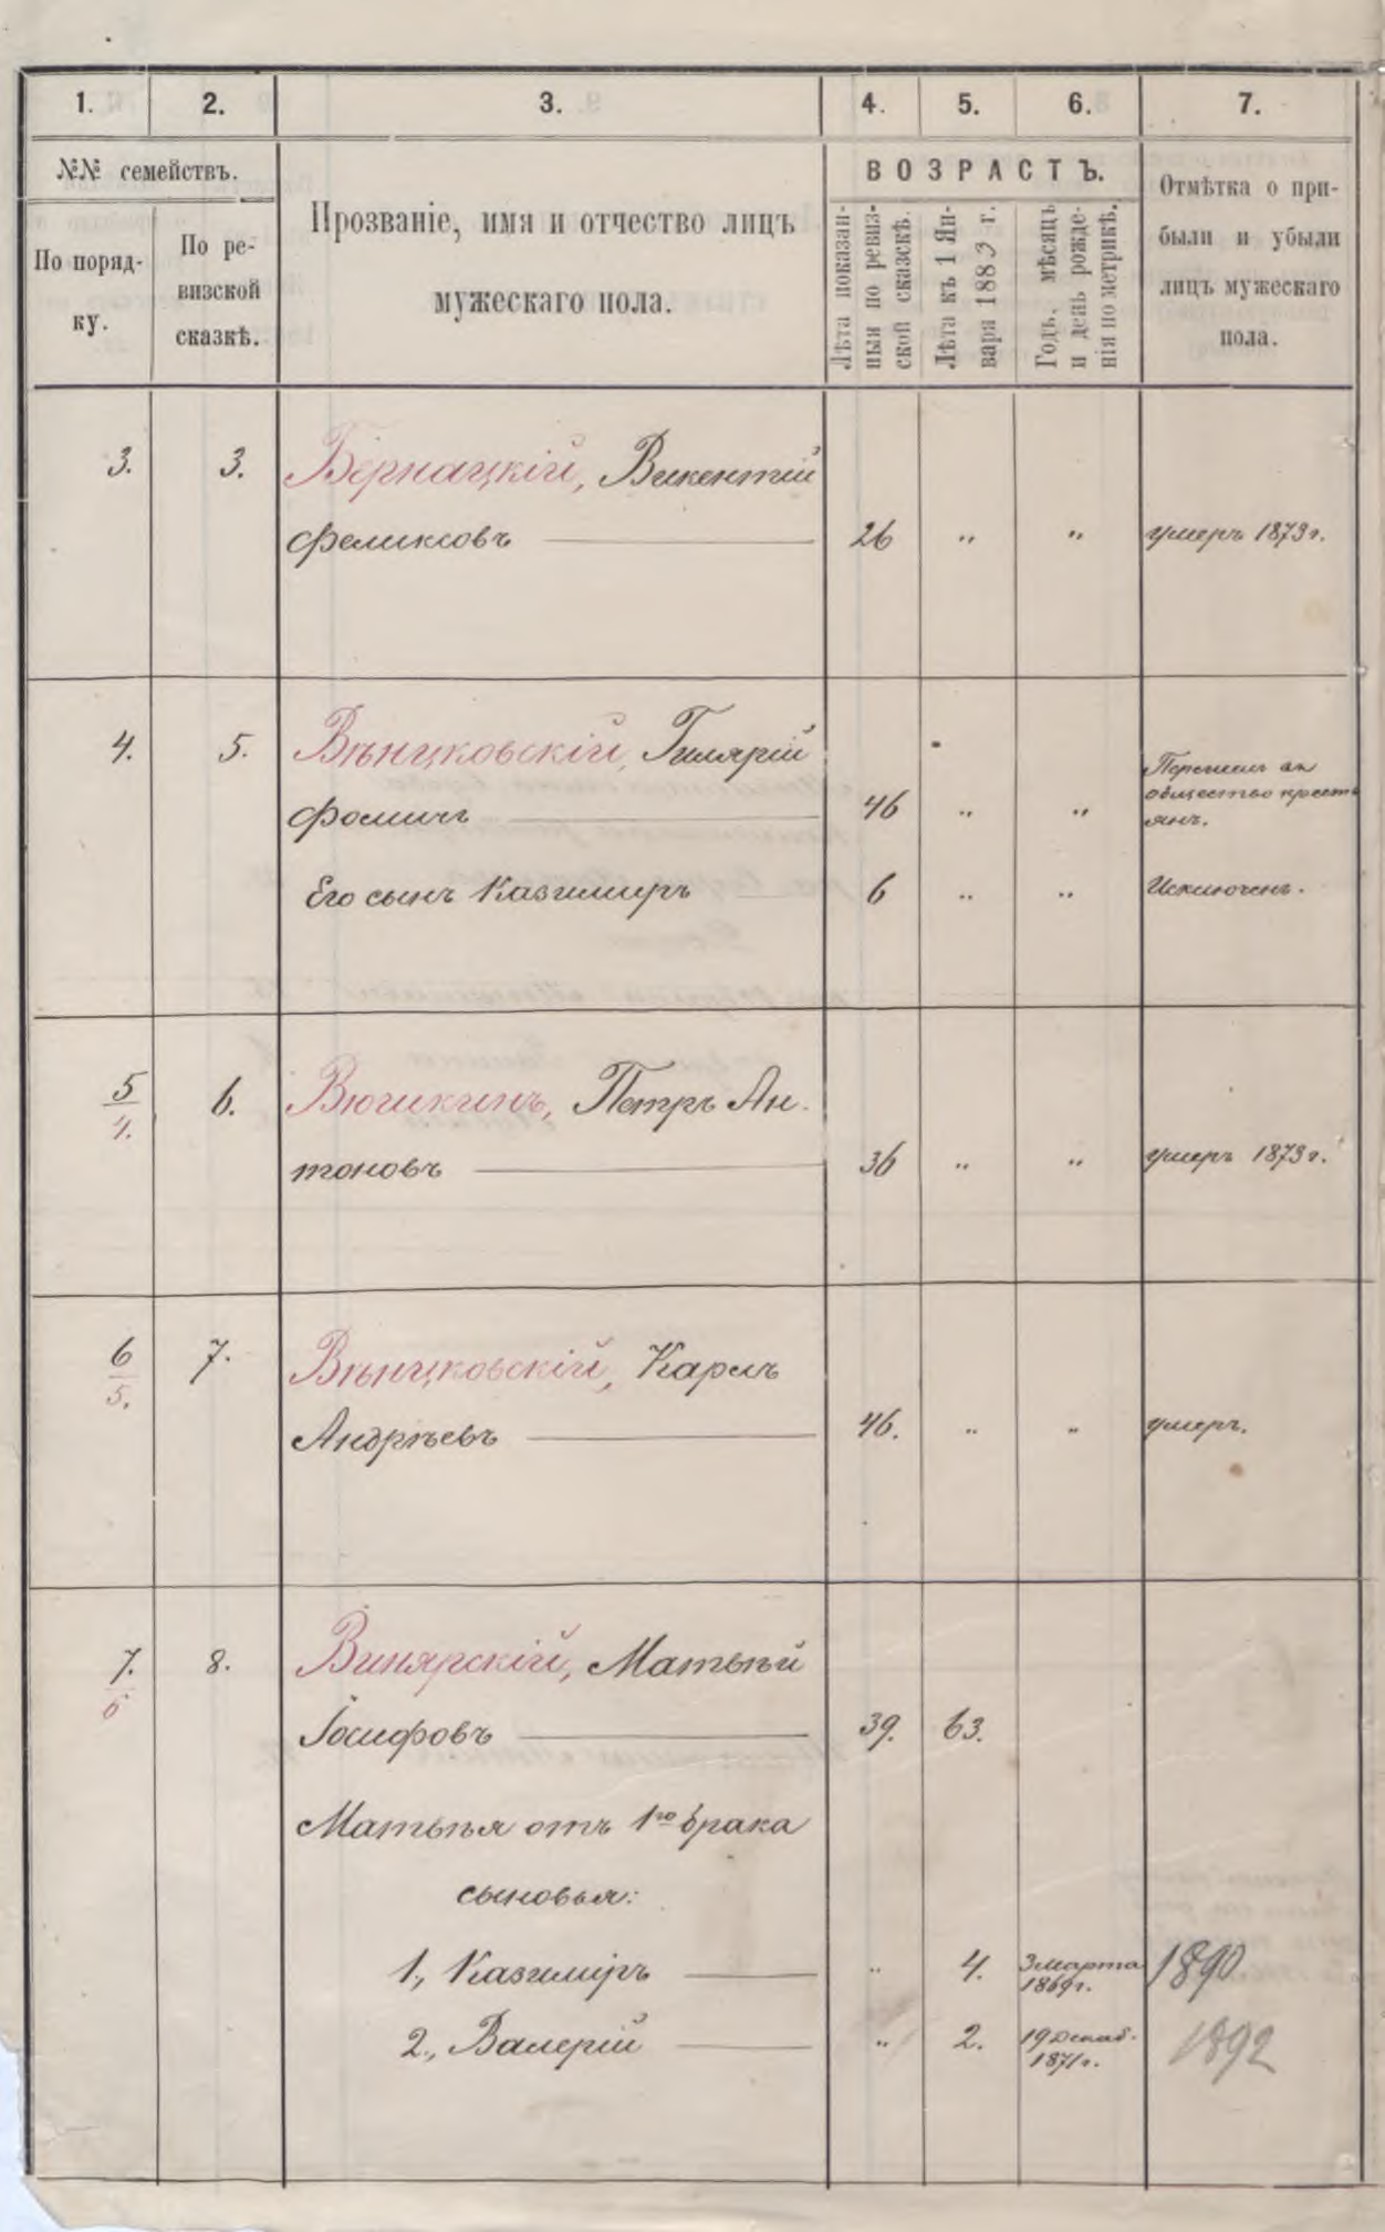 1. 2. 3. 4. 5. 6. 7.
№№ семействъ.
По поряд-
ку.
По ре-
визской
сказкѣ.
Прозваніе, имя и отчество лицъ
мужескаго пола.
ВОЗРАСТЪ.
Лѣта показан-
ныя по ревиз-
ской сказскѣ.
Лѣта къ 1 Ян-
варя 1883 г.
Годъ, мѣсяцъ
и день рожде-
нія по метрикѣ.
Отмѣтка о при-
были и убыли
лицъ мужескаго
пола.
3. 3. Бернацкій, Викентій
Феликсовъ 26 " " умеръ 1873 г.
4. 5. Вѣнцковскій, Гилярій
Фомичъ 46 " "
Перешелъ въ
общество кресть
янъ.
Его сынъ Казимиръ 6 " " Исключенъ.
5/4. 6. Вюшкинъ, Петръ Ан-
тоновъ 36 " " умеръ 1873 г.
6/5. 7. Вѣнцковскій, Карлъ
Андрѣевъ 46. " " умеръ.
7./6 8. Винярскій, Матвѣй
Іосифовъ 39. 63.
Матвѣя отъ 1го брака
сыновья:
1., Казимиръ " 4. 3 марта
1869 г.
1890
2., Валерій " 2. 19 Декаб.
1871 г.
1892